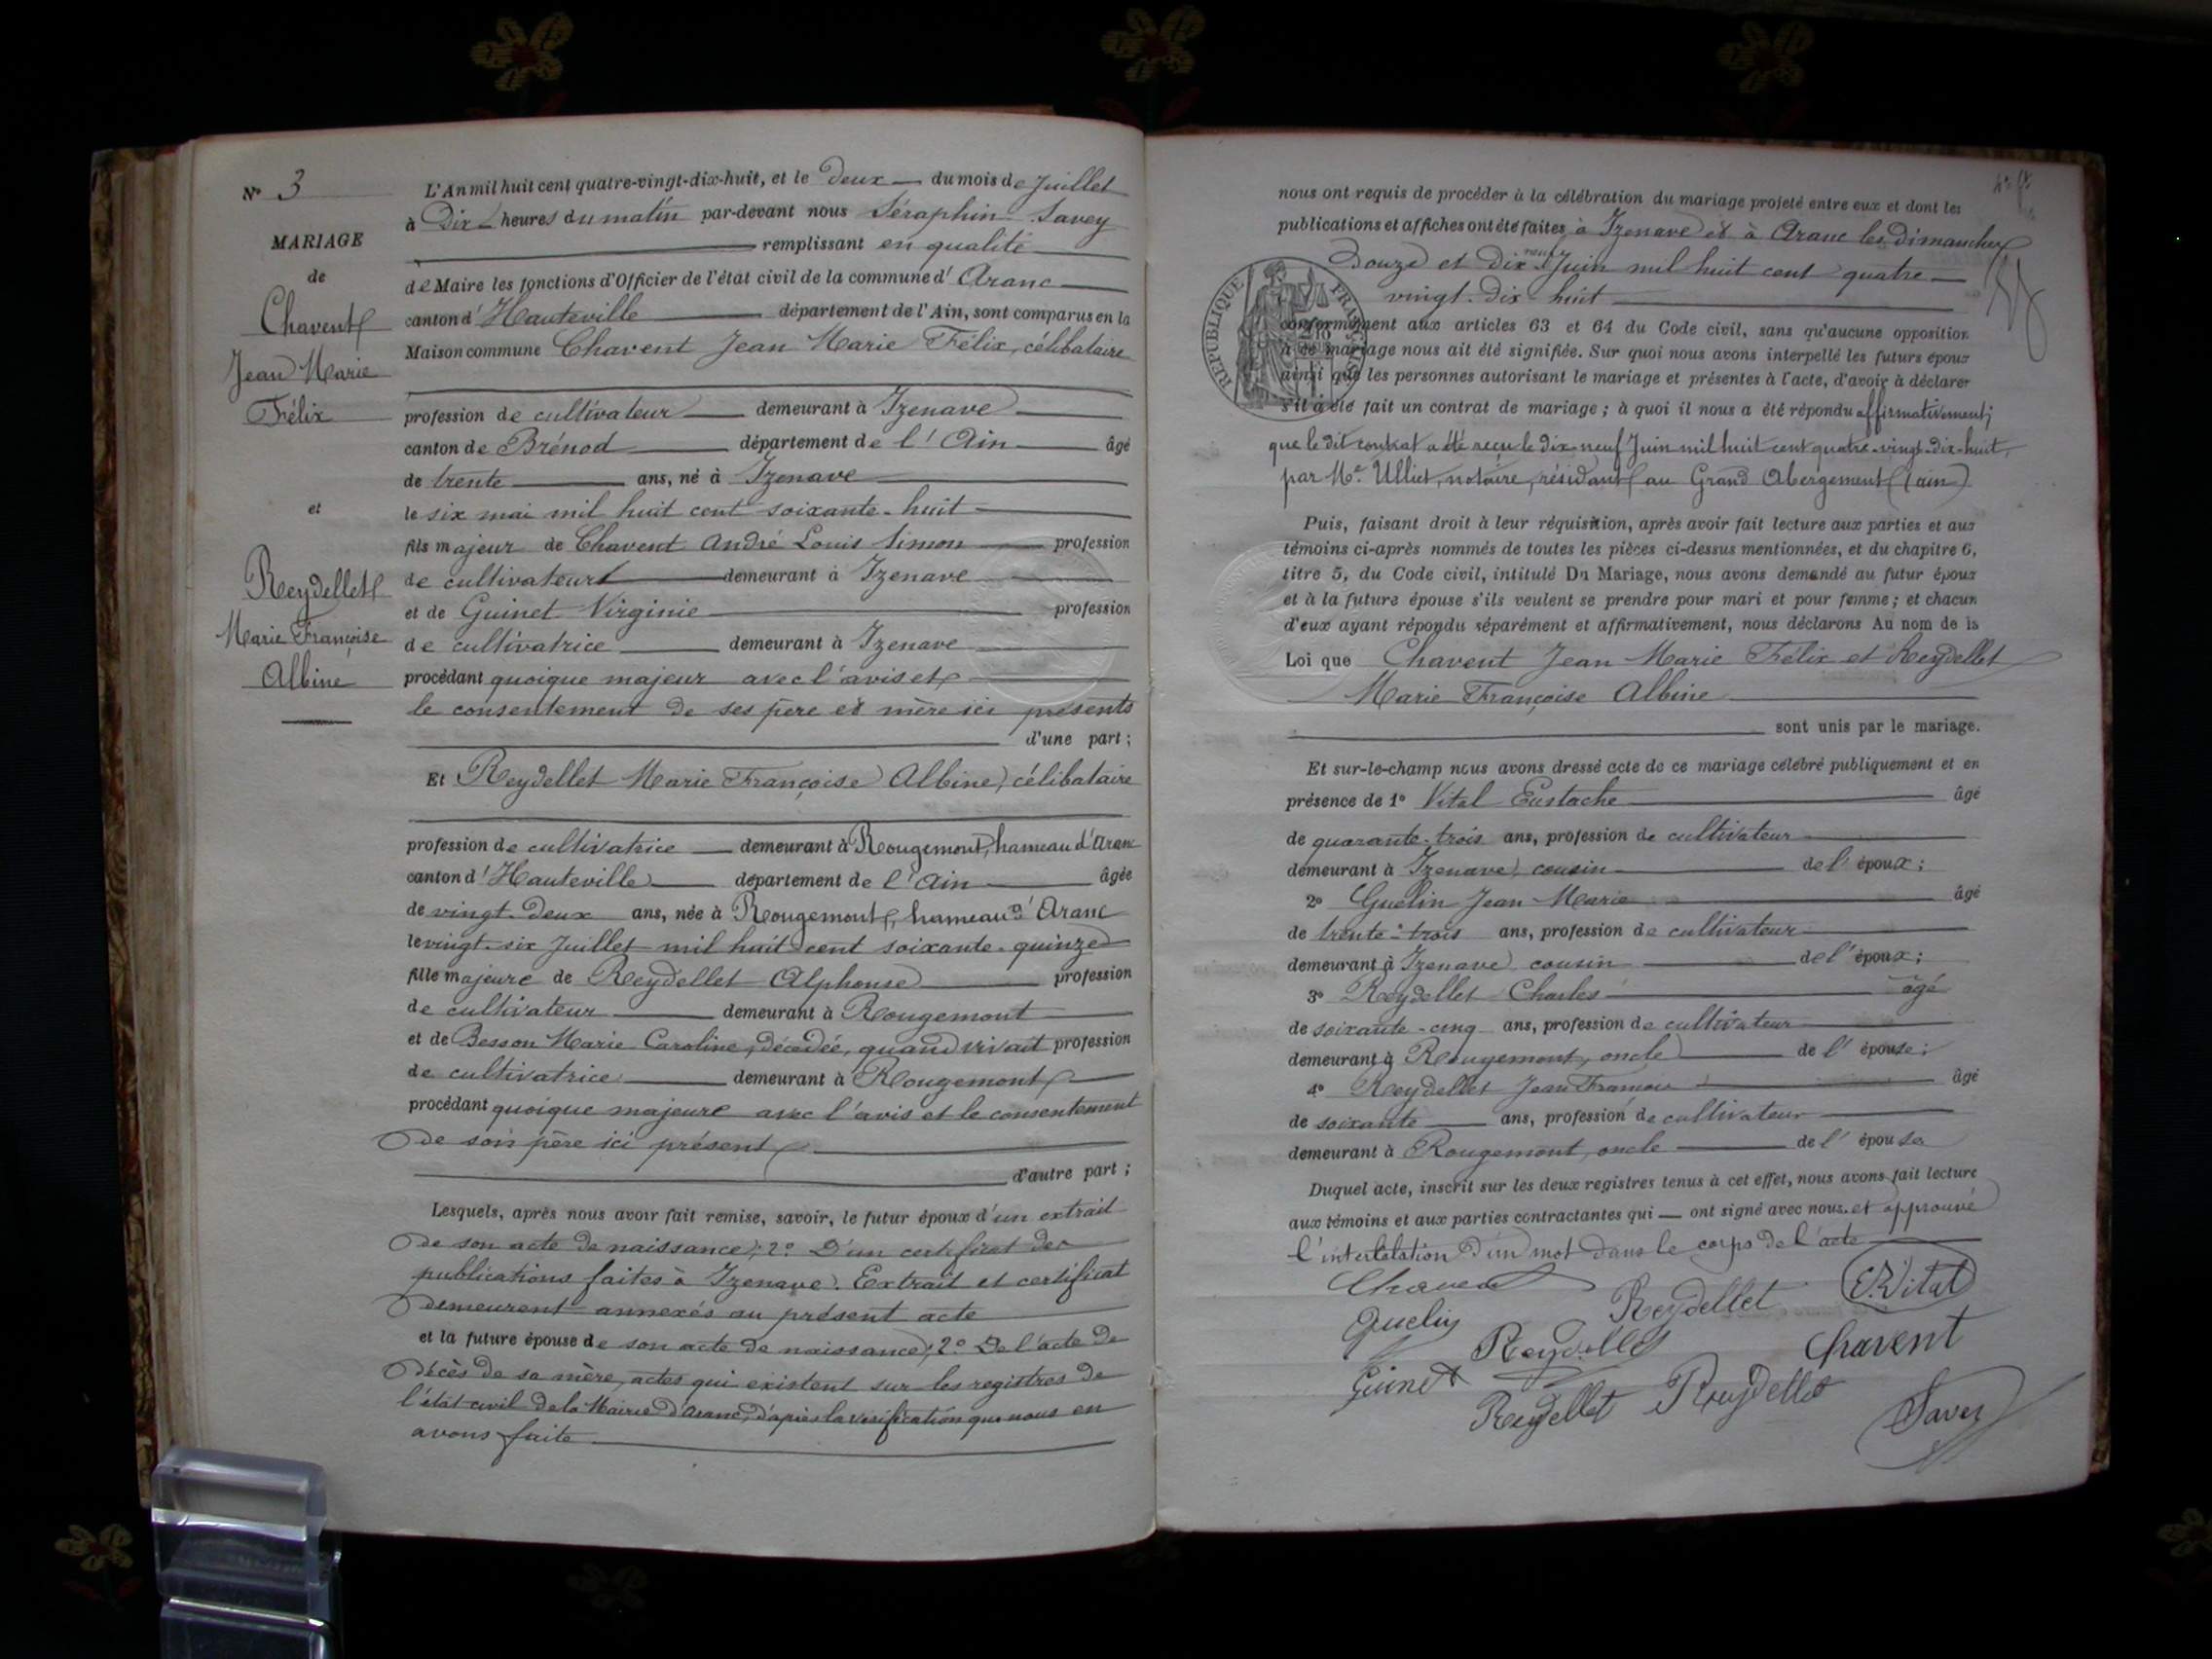 N° 3
MARIAGE
de
Chavent
Jean Marie
Félix
et
Reydellet
Marie Françoise
Albine
L'An mil huit cent quatre-vingt-dix-huit, et le deux du mois de Juillet
à Dix heures du matin par-devant nous Séraphin Savey
remplissant en qualité
de Maire les fonctions d'Officier de l'état civil de la commune d' Aranc
canton d' Hauteville département de l'Ain, sont comparus en la
Maison commune Chavent Jean Marie Félix, célibataire
profession de cultivateur demeurant à Izenave
canton de Brénod département de l'Ain âgé
de trente ans, né à Izenave
le six mai mil huit cent soixante-huit
fils majeur de Chavent André Louis Simon profession
de cultivateur demeurant à Izenave
et de Guinet Virginie profession
de cultivatrice demeurant à Izenave
procédant quoique majeur avec l'avis et
le consentement de ses père et mère ici présents
d'une part ;
Et Reydellet Marie Françoise Albine, célibataire
profession de cultivatrice demeurant à Rougemont, hameau d'Aranc
canton d' Hauteville département de l'Ain âgée
de vingt-deux ans, née à Rougemont, hameau d' Aranc
le vingt-six Juillet mil huit cent soixante-quinze
fille majeure de Reydellet Alphonse profession
de cultivateur demeurant à Rougemont
et de Besson Marie Caroline, décédée, quand vivait profession
de cultivatrice demeurant à Rougemont
procédant quoique majeure avec l'avis et le consentement
de son père ici présent
d'autre part ;
Lesquels, après nous avoir fait remise, savoir, le futur époux d'un extrait
de son acte de naissance; 2° D'un certificat des
publications faites à Izenave. Extrait et certificat
demeurent annexés au présent acte
et la future épouse de son acte de naissance; 2° De l'acte de
décès de sa mère, actes qui existent sur les registres de
l'état civil de la Mairie d'Aranc, d'après la vérification que nous en
avons faite
nous ont requis de procéder à la célébration du mariage projeté entre eux et dont les
publications et affiches ont été faites à Izenave et à Aranc les dimanches
neuf
Douze et Dix Juin mil huit cent quatre
vingt-dix-huit
RÉPUBLIQUE FRANÇAISE
conformément aux articles 63 et 64 du Code civil, sans qu'aucune opposition
à ce mariage nous ait été signifiée. Sur quoi nous avons interpellé les futurs époux
ainsi que les personnes autorisant le mariage et présentes à l'acte, d'avoir à déclarer
s'il a été fait un contrat de mariage ; à quoi il nous a été répondu affirmativement;
que le dit contrat a été reçu le dix-neuf Juin mil huit cent quatre-vingt-dix-huit,
par Me Ulliet, notaire, résidant au Grand Abergement (Ain)
Puis, faisant droit à leur réquisition, après avoir fait lecture aux parties et aux
témoins ci-après nommés de toutes les pièces ci-dessus mentionnées, et du chapitre 6,
titre 5, du Code civil, intitulé Du Mariage, nous avons demandé au futur époux
et à la future épouse s'ils veulent se prendre pour mari et pour femme ; et chacun
d'eux ayant répondu séparément et affirmativement, nous déclarons Au nom de la
Loi que Chavent Jean Marie Félix et Reydellet
Marie Françoise Albine
sont unis par le mariage.
Et sur-le-champ nous avons dressé acte de ce mariage célébré publiquement et en
présence de 1° Vital Eustache âgé
de quarante-trois ans, profession de cultivateur
demeurant à Izenave, cousin de l'époux ;
2° Guelin Jean Marie âgé
de trente-trois ans, profession de cultivateur
demeurant à Izenave cousin de l'époux ;
3° Reydellet Charles âgé
de soixante-cinq ans, profession de cultivateur
demeurant à Rougemont, oncle de l'épouse ;
4° Reydellet Jean François âgé
de soixante ans, profession de cultivateur
demeurant à Rougemont, oncle de l'épouse
Duquel acte, inscrit sur les deux registres tenus à cet effet, nous avons fait lecture
aux témoins et aux parties contractantes qui ont signé avec nous. et approuvé
l'intercalation d'un mot dans le corps de l'acte
Chavent
Reydellet
E. Vital
Guelin
Reydellet
Chavent
Guinet
Reydellet
Reydellet
Savey